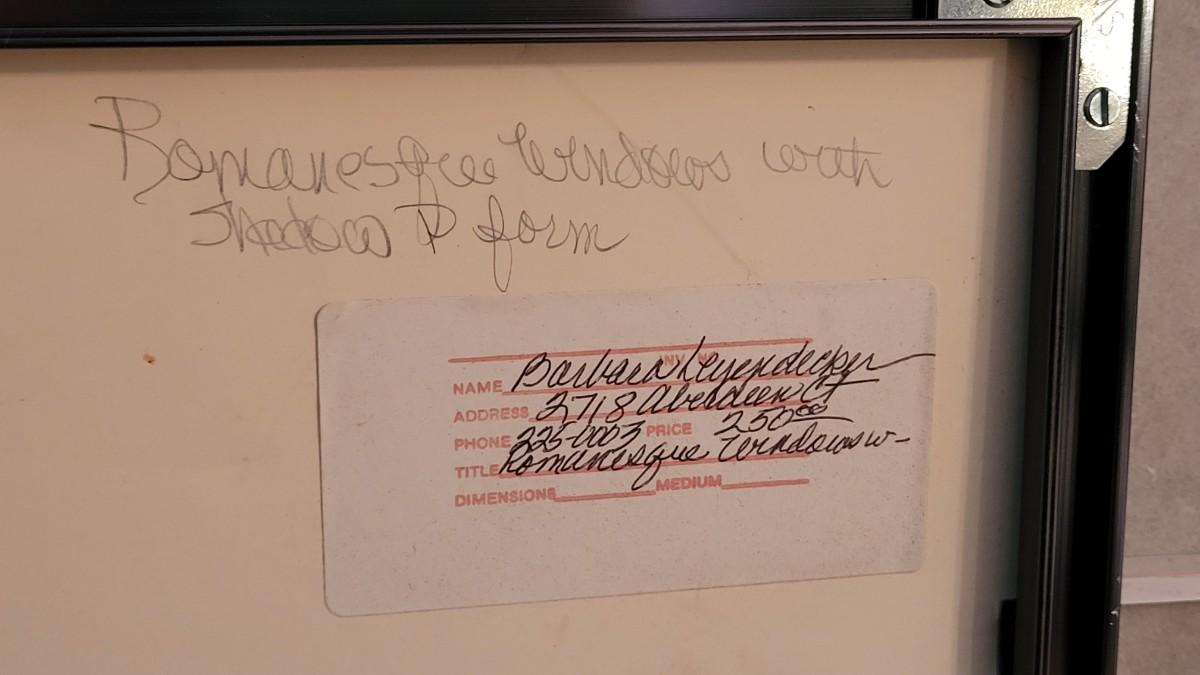 Romanesque Windows with
Shadow P. form
INV. NO.
NAME Barbara Leyendecker
ADDRESS 2718 Aberdeen Ct
PHONE 225-0003 PRICE 250.00
TITLE Romanesque Windows w-
DIMENSIONS MEDIUM